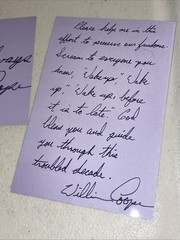 Please help me in this
effort to preserve our freedom.
Scream to everyone you
know, "Wake up," Wake
up," "Wake up, before
it is to late." God
bless you and guide
you through this
troubled decade.
William Cooper